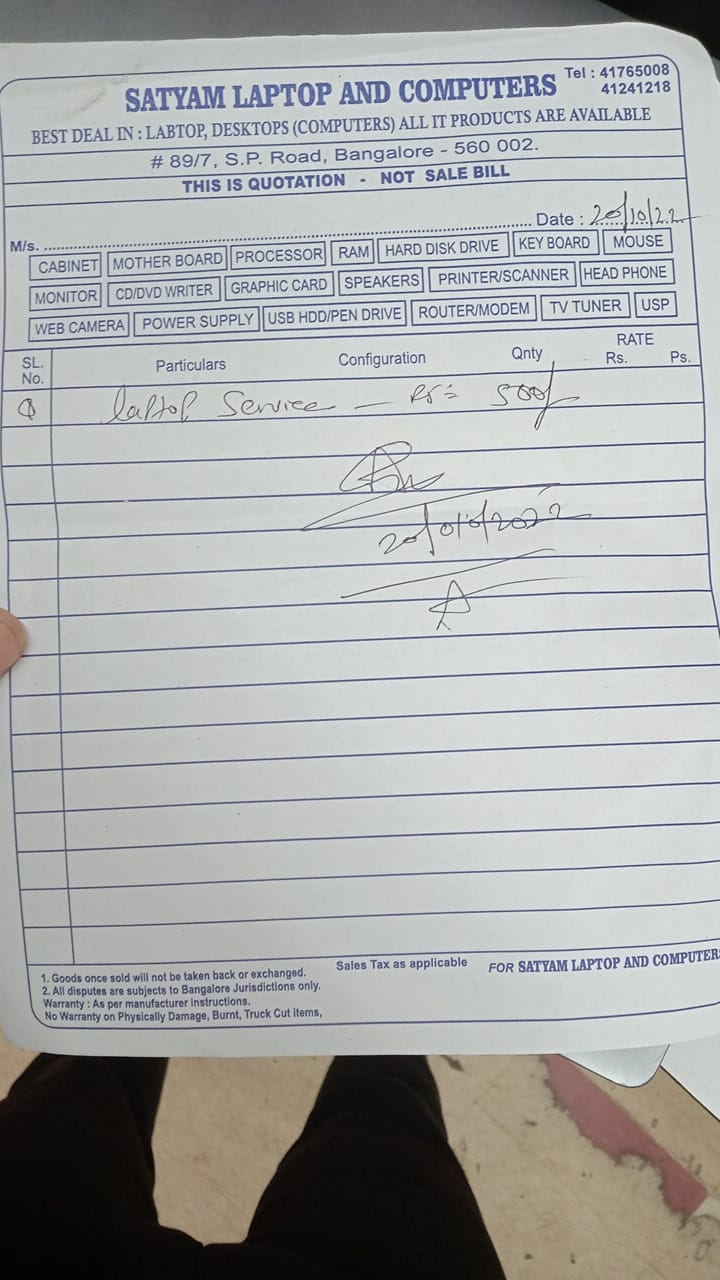 SATYAM LAPTOP AND COMPUTERS
Tel : 41765008
41241218
BEST DEAL IN : LABTOP, DESKTOPS (COMPUTERS) ALL IT PRODUCTS ARE AVAILABLE
# 89/7, S.P. Road, Bangalore - 560 002.
THIS IS QUOTATION - NOT SALE BILL
M/s. Date : 20/10/22
CABINET MOTHER BOARD PROCESSOR RAM HARD DISK DRIVE KEY BOARD MOUSE
MONITOR CD/DVD WRITER GRAPHIC CARD SPEAKERS PRINTER/SCANNER HEAD PHONE
WEB CAMERA POWER SUPPLY USB HDD/PEN DRIVE ROUTER/MODEM TV TUNER USP
SL. No. Particulars Configuration Qnty RATE Rs. Ps.
laptop Service — Rs= 500/-
20/010/2022
1. Goods once sold will not be taken back or exchanged.
2. All disputes are subjects to Bangalore Jurisdictions only.
Warranty : As per manufacturer instructions.
No Warranty on Physically Damage, Burnt, Truck Cut items,
Sales Tax as applicable
FOR SATYAM LAPTOP AND COMPUTERS